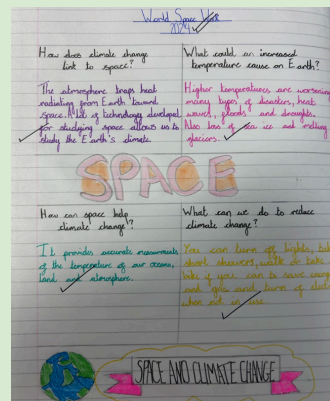 World Space Week
2024
How does climate change
link to space?
The atmosphere traps heat
radiating from Earth toward
space. A lot of technology developed
for studying space allows us to
study the Earth's climate.
What could an increased
temperature cause on Earth?
Higher temperatures are worsening
many types of disasters, heat
waves, floods and droughts.
Also loss of sea ice and melting
glaciers.
SPACE
How can space help
climate change?
It provides accurate measurements
of the temperature of our oceans,
land and atmosphere.
What can we do to reduce
climate change?
You can turn of lights, take
short showers, walk or take
bike if you can to save energy
and gas and turn of
when not in use.
SPACE AND CLIMATE CHANGE